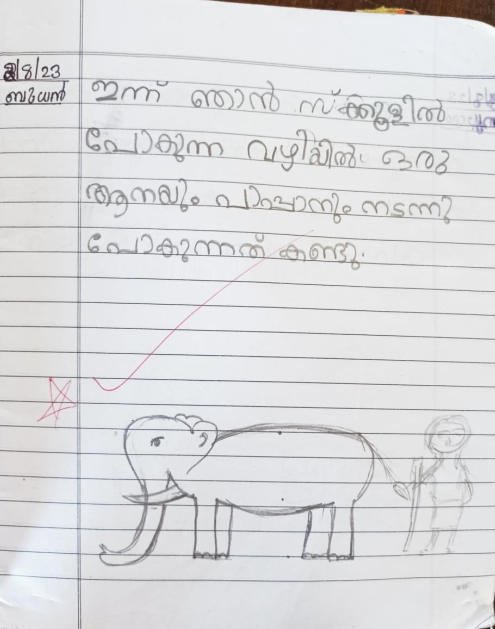 2/8/23
ബുധൻ
ഇന്ന് ഞാൻ സ്ക്കൂളിൽ
പോകുന്ന വഴിയിൽ ഒരു
ആനയും പാപ്പാനും നടന്നു
പോകുന്നത് കണ്ടു.